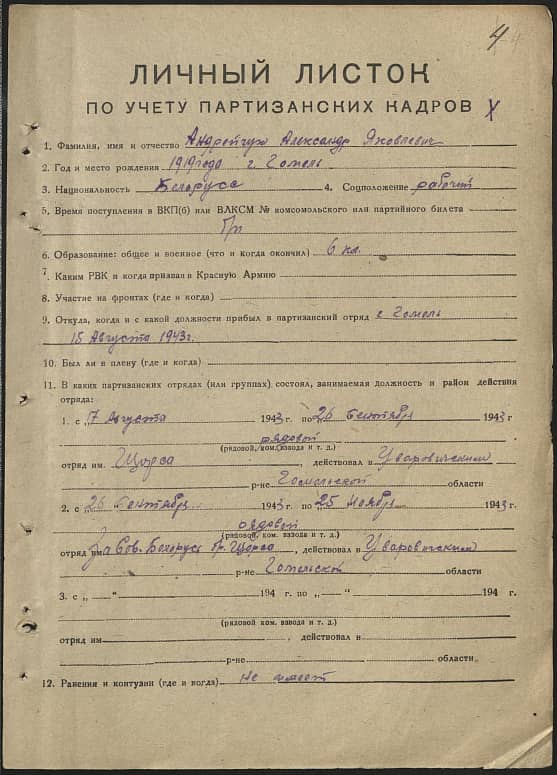 4
ЛИЧНЫЙ ЛИСТОК
ПО УЧЕТУ ПАРТИЗАНСКИХ КАДРОВ
1. Фамилия, имя и отчество Андрейчук Александр Яковлевич
2. Год и место рождения 1919 года г. Гомель
3. Национальность Белорусс 4. Соцположение рабочий
5. Время поступления в ВКП(б) или ВЛКСМ № комсомольского или партийного билета
6. Образование: общее и военное (что и когда окончил) 6 кл.
7. Каким РВК и когда призван в Красную Армию
8. Участие на фронтах (где и когда)
9. Откуда, когда и с какой должности прибыл в партизанский отряд г. Гомель
15 Августа 1943 г.
10. Был ли в плену (где и когда)
11. В каких партизанских отрядах (или группах) состоял, занимаемая должность и район действия
отряда:
1. с „17 Августа 1943 г. по „26 Сентября 1943 г
рядовой
(рядовой, ком. взвода и т. д.)
отряд им. Щорса, действовал в Уваровичским
р-не Гомельской области
2. с 26 Сентября 1943 г. по „25 Ноября 1943 г
рядовой
(рядовой, ком. взвода и т. д.)
отряд им За Сов. Белорусь бр. Щорса, действовал в Уваровичским
р-не Гомельской области
3. с „ — “ 194 г. по „ — “ 194 г.
(рядовой ком. взвода и т. д.)
отряд им. , действовал в
р-не области.
12. Ранения и контузии (где и когда) Не имеет